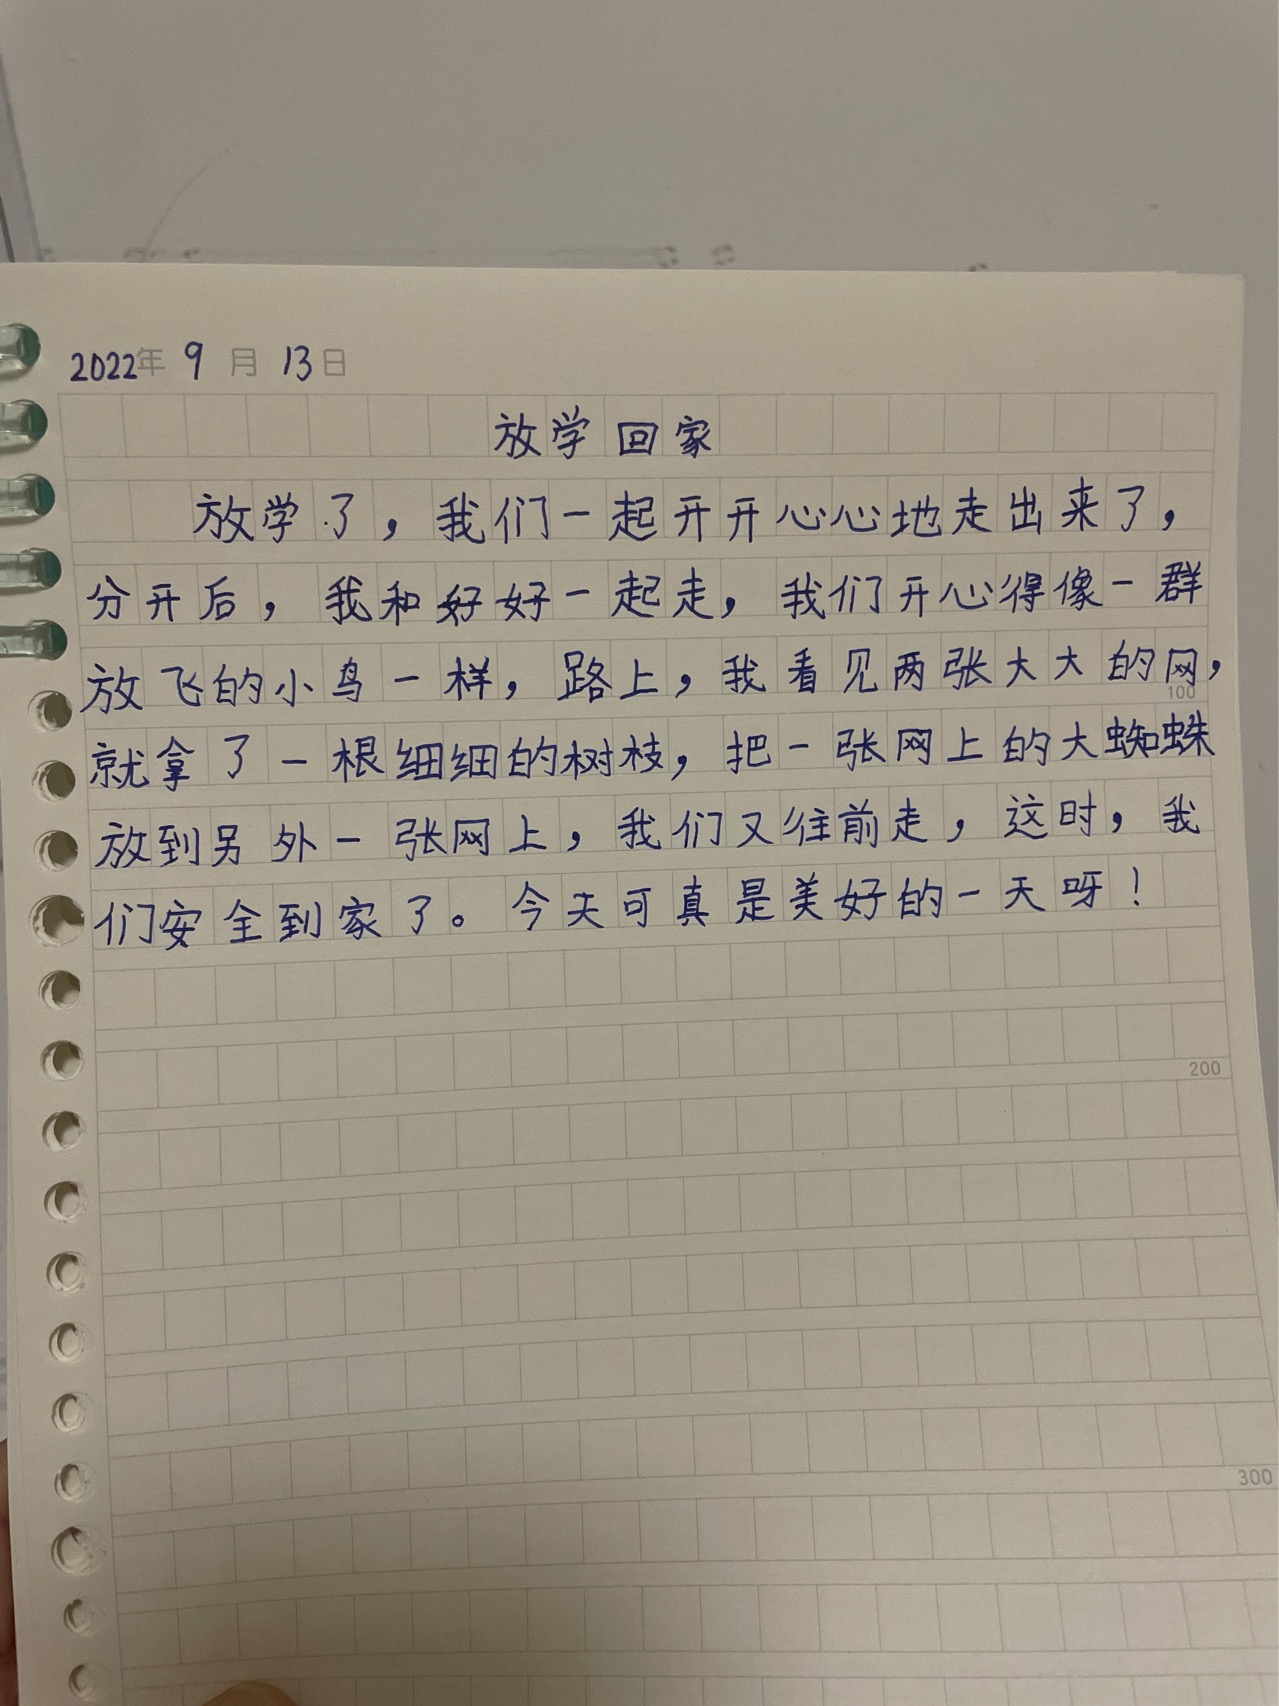 2022年 9 月 13日
放学回家
放学了，我们一起开开心心地走出来了，
分开后，我和好好一起走，我们开心得像一群
放飞的小鸟一样，路上，我看见两张大大的网，
100
就拿了一根细细的树枝，把一张网上的大蜘蛛
放到另外一张网上，我们又往前走，这时，我
们安全到家了。今天可真是美好的一天呀！
200
300